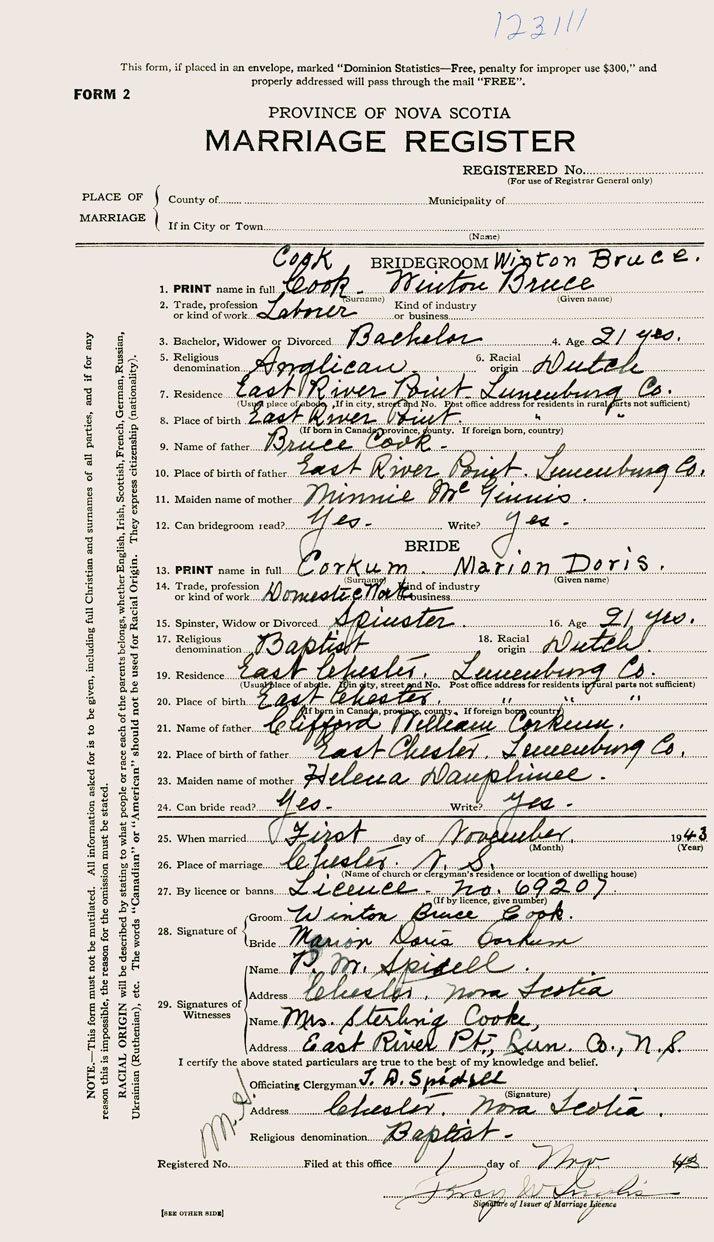 123111
This form, if placed in an envelope, marked “Dominion Statistics—Free, penalty for improper use $300,” and
properly addressed will pass through the mail “FREE”.
FORM 2
PROVINCE OF NOVA SCOTIA
MARRIAGE REGISTER
REGISTERED No.
(For use of Registrar General only)
PLACE OF MARRIAGE
County of Municipality of
If in City or Town
(Name)
Cook BRIDEGROOM Winton Bruce.
1. PRINT name in full Cook. Winton Bruce
(Surname) (Given name)
2. Trade, profession or kind of work Laborer Kind of industry or business
3. Bachelor, Widower or Divorced Bachelor 4. Age 21 yrs.
5. Religious denomination Anglican. 6. Racial origin Dutch
7. Residence East River Point. Lunenburg Co.
(Usual place of abode. If in city, street and No. Post office address for residents in rural parts not sufficient)
8. Place of birth East River Point. " "
(If born in Canada, province, county. If foreign born, country)
9. Name of father Bruce Cook.
10. Place of birth of father East River Point. Lunenburg Co.
11. Maiden name of mother Minnie McGinnis.
12. Can bridegroom read? Yes. Write? Yes.
BRIDE
13. PRINT name in full Corkum. Marion Doris.
(Surname) (Given name)
14. Trade, profession or kind of work Domestic Work Kind of industry or business
15. Spinster, Widow or Divorced Spinster. 16. Age 21 yrs.
17. Religious denomination Baptist 18. Racial origin Dutch.
19. Residence East Chester. Lunenburg Co.
(Usual place of abode. If in city, street and No. Post office address for residents in rural parts not sufficient)
20. Place of birth East Chester. " "
(If born in Canada, province, county. If foreign born, country)
21. Name of father Clifford William Corkum.
22. Place of birth of father East Chester. Lunenburg Co.
23. Maiden name of mother Helena Dauphinee.
24. Can bride read? Yes. Write? Yes.
25. When married First day of November. 1943
(Month) (Year)
26. Place of marriage Chester. N.S.
(Name of church or clergyman's residence or location of dwelling house)
27. By licence or banns Licence. No. 69207
(If by licence, give number)
28. Signature of
Groom Winton Bruce Cook.
Bride Marion Doris Corkum
29. Signatures of Witnesses
Name P. M. Spidell.
Address Chester, Nova Scotia
Name Mrs. Sterling Cooke,
Address East River Pt., Lun. Co., N.S.
I certify the above stated particulars are true to the best of my knowledge and belief.
Officiating Clergyman T. D. Spidell
(Signature)
Address Chester. Nova Scotia.
Religious denomination Baptist.
Registered No. Filed at this office 1 day of Nov 1943
Signature of Issuer of Marriage Licence
[SEE OTHER SIDE]
NOTE.—This form must not be mutilated. All information asked for is to be given, including full Christian and surnames of all parties, and if for any
reason this is impossible, the reason for the omission must be stated.
RACIAL ORIGIN will be described by stating to what people or race each of the parents belongs, whether English, Irish, Scottish, French, German, Russian,
Ukrainian (Ruthenian), etc. The words “Canadian” or “American” should not be used for Racial Origin. They express citizenship (nationality).